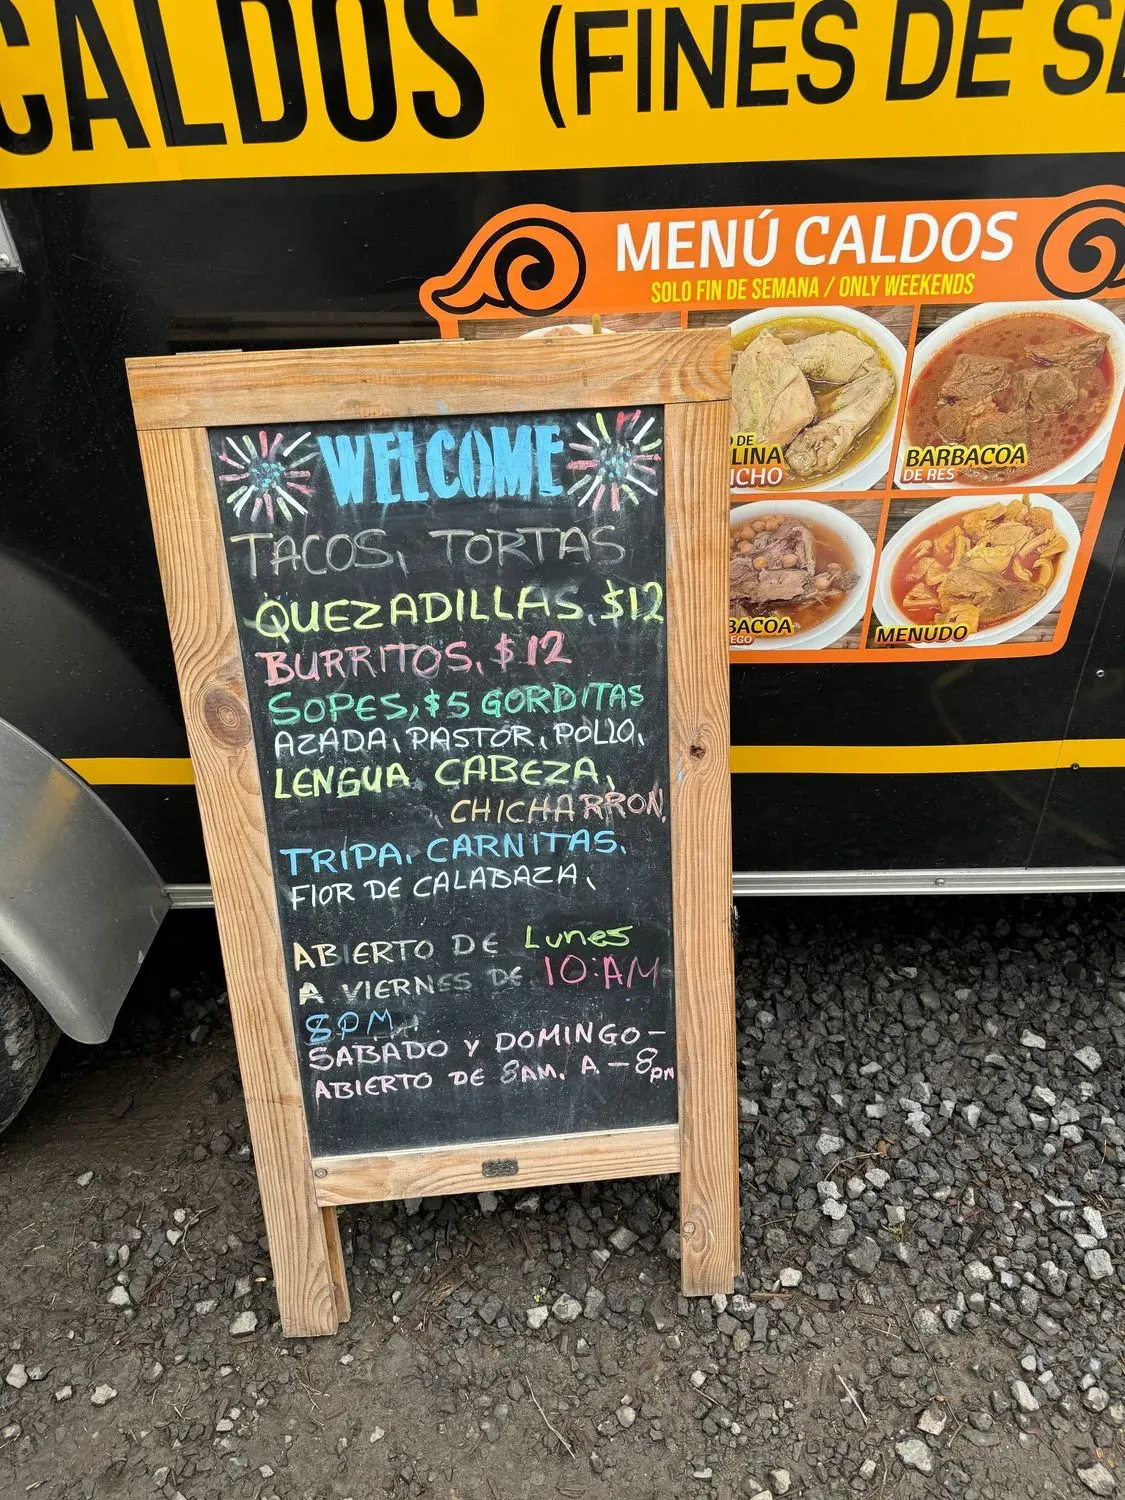 CALDOS (FINES DE SE
MENÚ CALDOS
SOLO FIN DE SEMANA / ONLY WEEKENDS
DE
LINA
ICHO
BARBACOA
DE RES
BACOA
EGO
MENUDO
WELCOME
TACOS, TORTAS
QUEZADILLAS, $12
BURRITOS, $12
SOPES, $5 GORDITAS
AZADA, PASTOR, POLLO,
LENGUA CABEZA,
, CHICHARRON,
TRIPA, CARNITAS,
FlOR DE CALABAZA,
ABIERTO DE Lunes
A VIERNES DE 10:AM
8PM
SABADO Y DOMINGO -
ABIERTO DE 8AM. A - 8pm